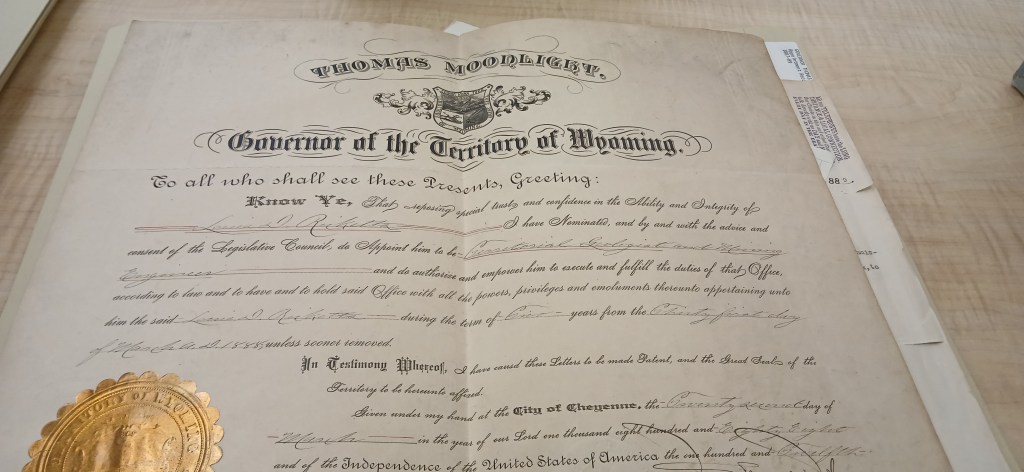 THOMAS MOONLIGHT,
Governor of the Territory of Wyoming.
To all who shall see these Presents, Greeting:
Know Ye, That reposing special trust and confidence in the Ability and Integrity of
Louis D. Ricketts I have Nominated, and by and with the advice and
consent of the Legislative Council, do Appoint him to be Territorial Geologist and Mining
Engineer and do authorize and empower him to execute and fulfill the duties of that Office,
according to law and to have and to hold said Office with all the powers, privileges and emoluments thereunto appertaining unto
him the said Louis D. Ricketts during the term of Two years from the Thirty first day
of March A.D. 1888, unless sooner removed.
In Testimony Whereof, I have caused these Letters to be made Patent, and the Great Seal of the
Territory to be hereunto affixed.
Given under my hand at the City of Cheyenne, the Twenty second day of
March in the year of our Lord one thousand eight hundred and Eighty Eight
and of the Independence of the United States of America the one hundred and Twelfth